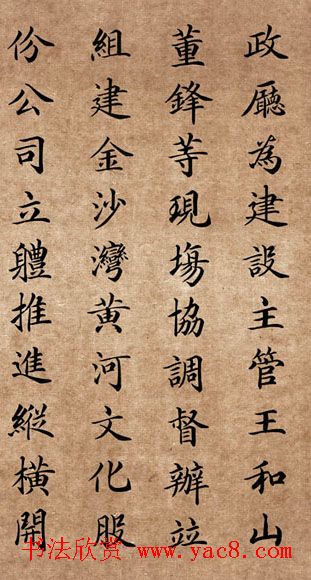 政厅為建設主管王和山
董鋒等現場協調督辦並
組建金沙灣黄河文化股
份公司立體推進縱横開
书法欣赏 www.yac8.com